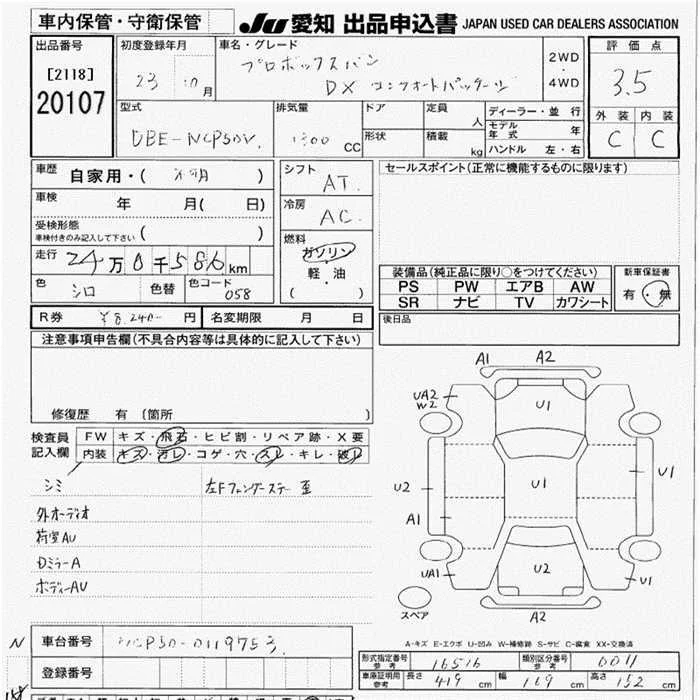 車内保管・守衛保管
JU 愛知 出品申込書 JAPAN USED CAR DEALERS ASSOCIATION
出品番号
[2118]
20107
初度登録年月
23 10月
車名・グレード
プロボックスバン
DX コンフォートパッケージ
2WD
・
4WD
評価点
3.5
外装 内装
C C
型式
DBE-NCP50V
排気量
1300 CC
ドア
形状
定員
人
積載
kg
ディーラー・並行
モデル年式 年
ハンドル 左・右
車歴
自家用・( 不明 )
車検
年 月( 日)
受検形態
車検付きのみ記入して下さい ( )
走行
24万0千586km
色
シロ
色替
色コード
058
シフト
AT
冷房
AC
燃料
ガソリン
軽・油
( )
セールスポイント(正常に機能するものに限ります)
装備品(純正品に限り○をつけてください)
PS PW エアB AW
SR ナビ TV カワシート
新車保証書
有・無
後日品
R券 ¥8,240- 円
名変期限 月 日
注意事項申告欄(不具合内容等は具体的に記入して下さい)
修復歴 有 (箇所 )
検査員
記入欄
FW キズ・飛石・ヒビ割・リペア跡・X要
内装 キズ・汚レ・コゲ・穴・スレ・キレ・破レ
シミ
左Fフェンダーステー歪
外オーディオ
荷室AU
DミラーA
ボディーAU
A1 A2
UA2
W2
U1
U1
U1
U2
U1
A1
U2
UA1
U1
スペア
A2
A-キズ E-エクボ U-凹み W-補修跡 S-サビ C-腐食 XX-交換済
N
車台番号
NCP50-0119753
登録番号
形式指定番号
参考
16516
類別区分番号
参考
0011
車庫証明用
参考
長さ 419 cm 幅 169 cm 高さ 152 cm